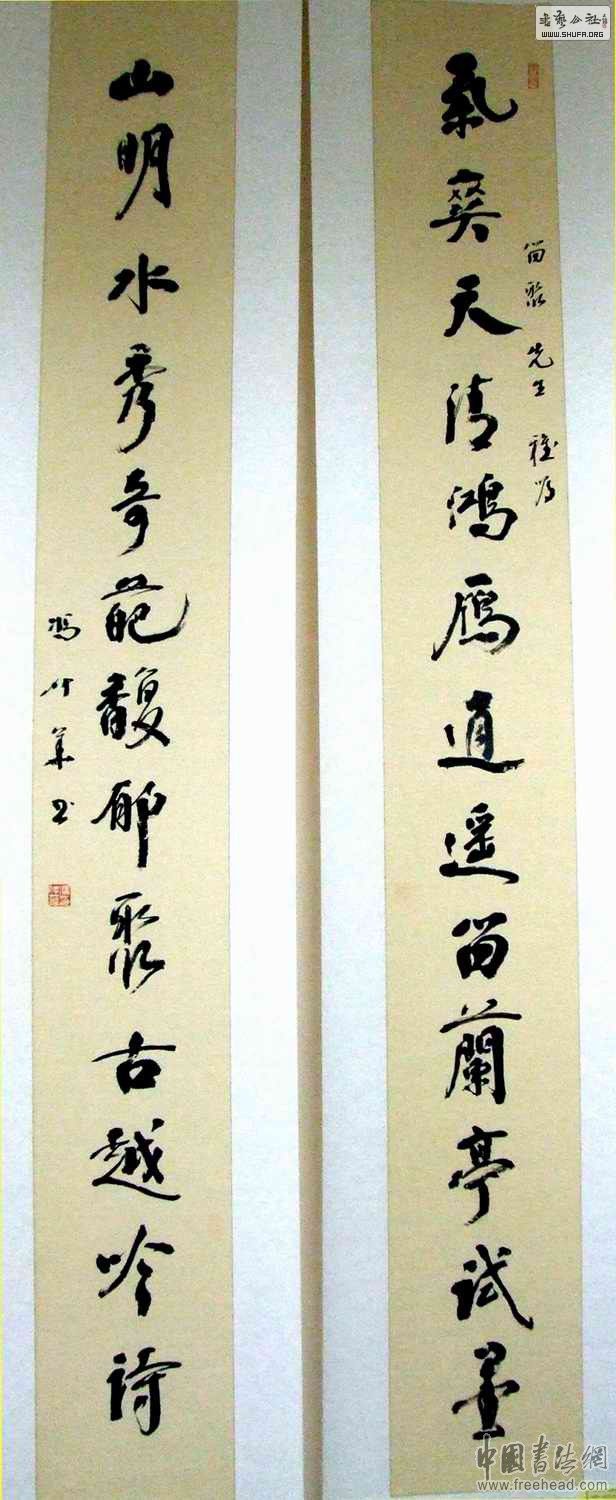 書藝公社
WWW.SHUFA.ORG
氣爽天清鴻雁逍遥留蘭亭試墨
留聚先生雅嘱
山明水秀奇葩馥郁聚古越吟詩
中國書法網
www.freehead.com